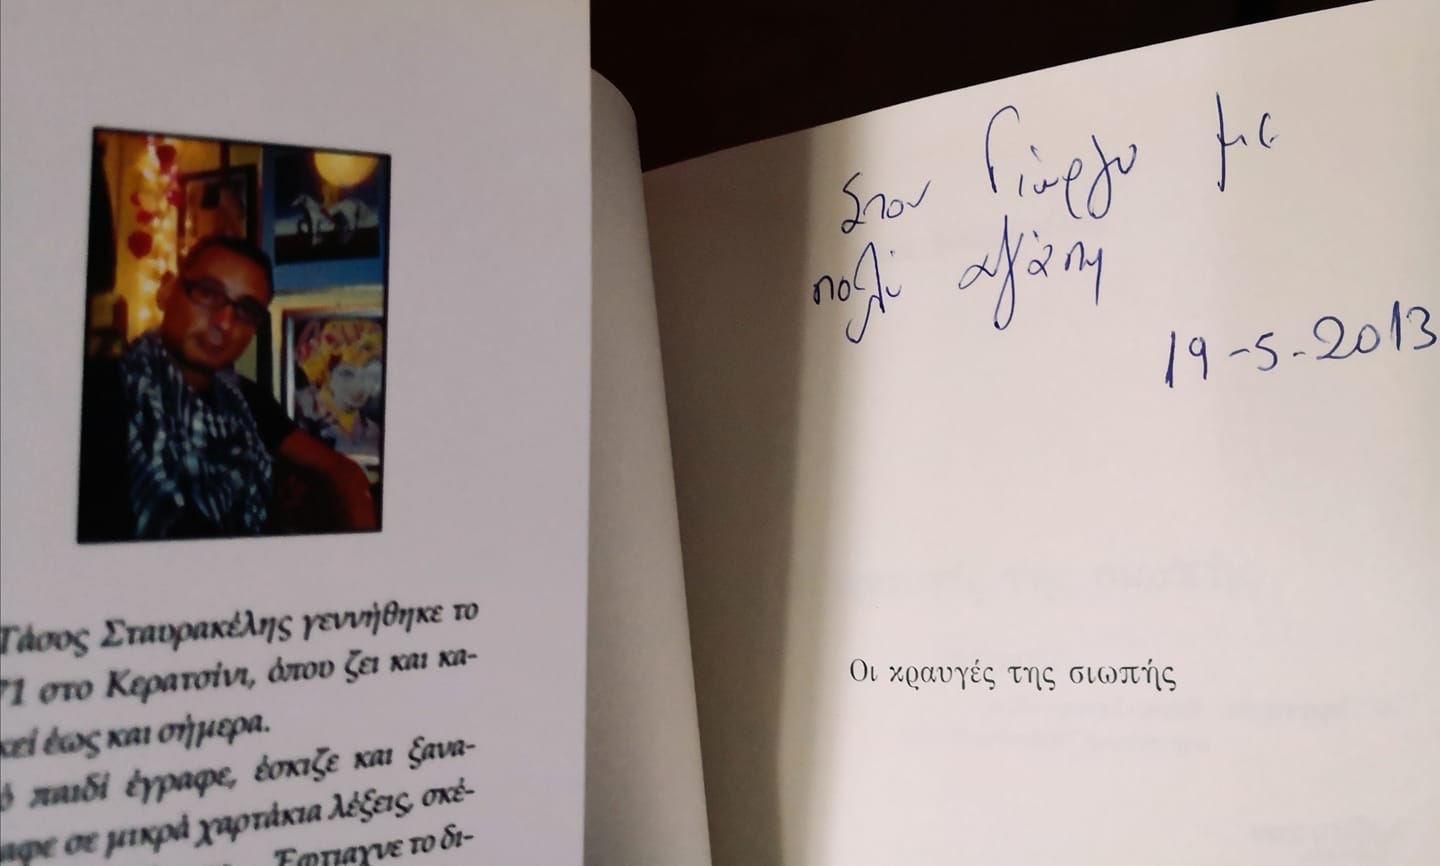 Τάσος Σταυρακέλης γεννήθηκε το
71 στο Κερατσίνι, όπου ζει και κα-
κεί έως και σήμερα.
ό παιδί έγραφε, έσκιζε και ξανα-
αφε σε μικρά χαρτάκια λέξεις, σκέ-
Έφτιαχνε το δι-
Στον Γιώργο με
πολύ αγάπη
19-5-2013
Οι κραυγές της σιωπής